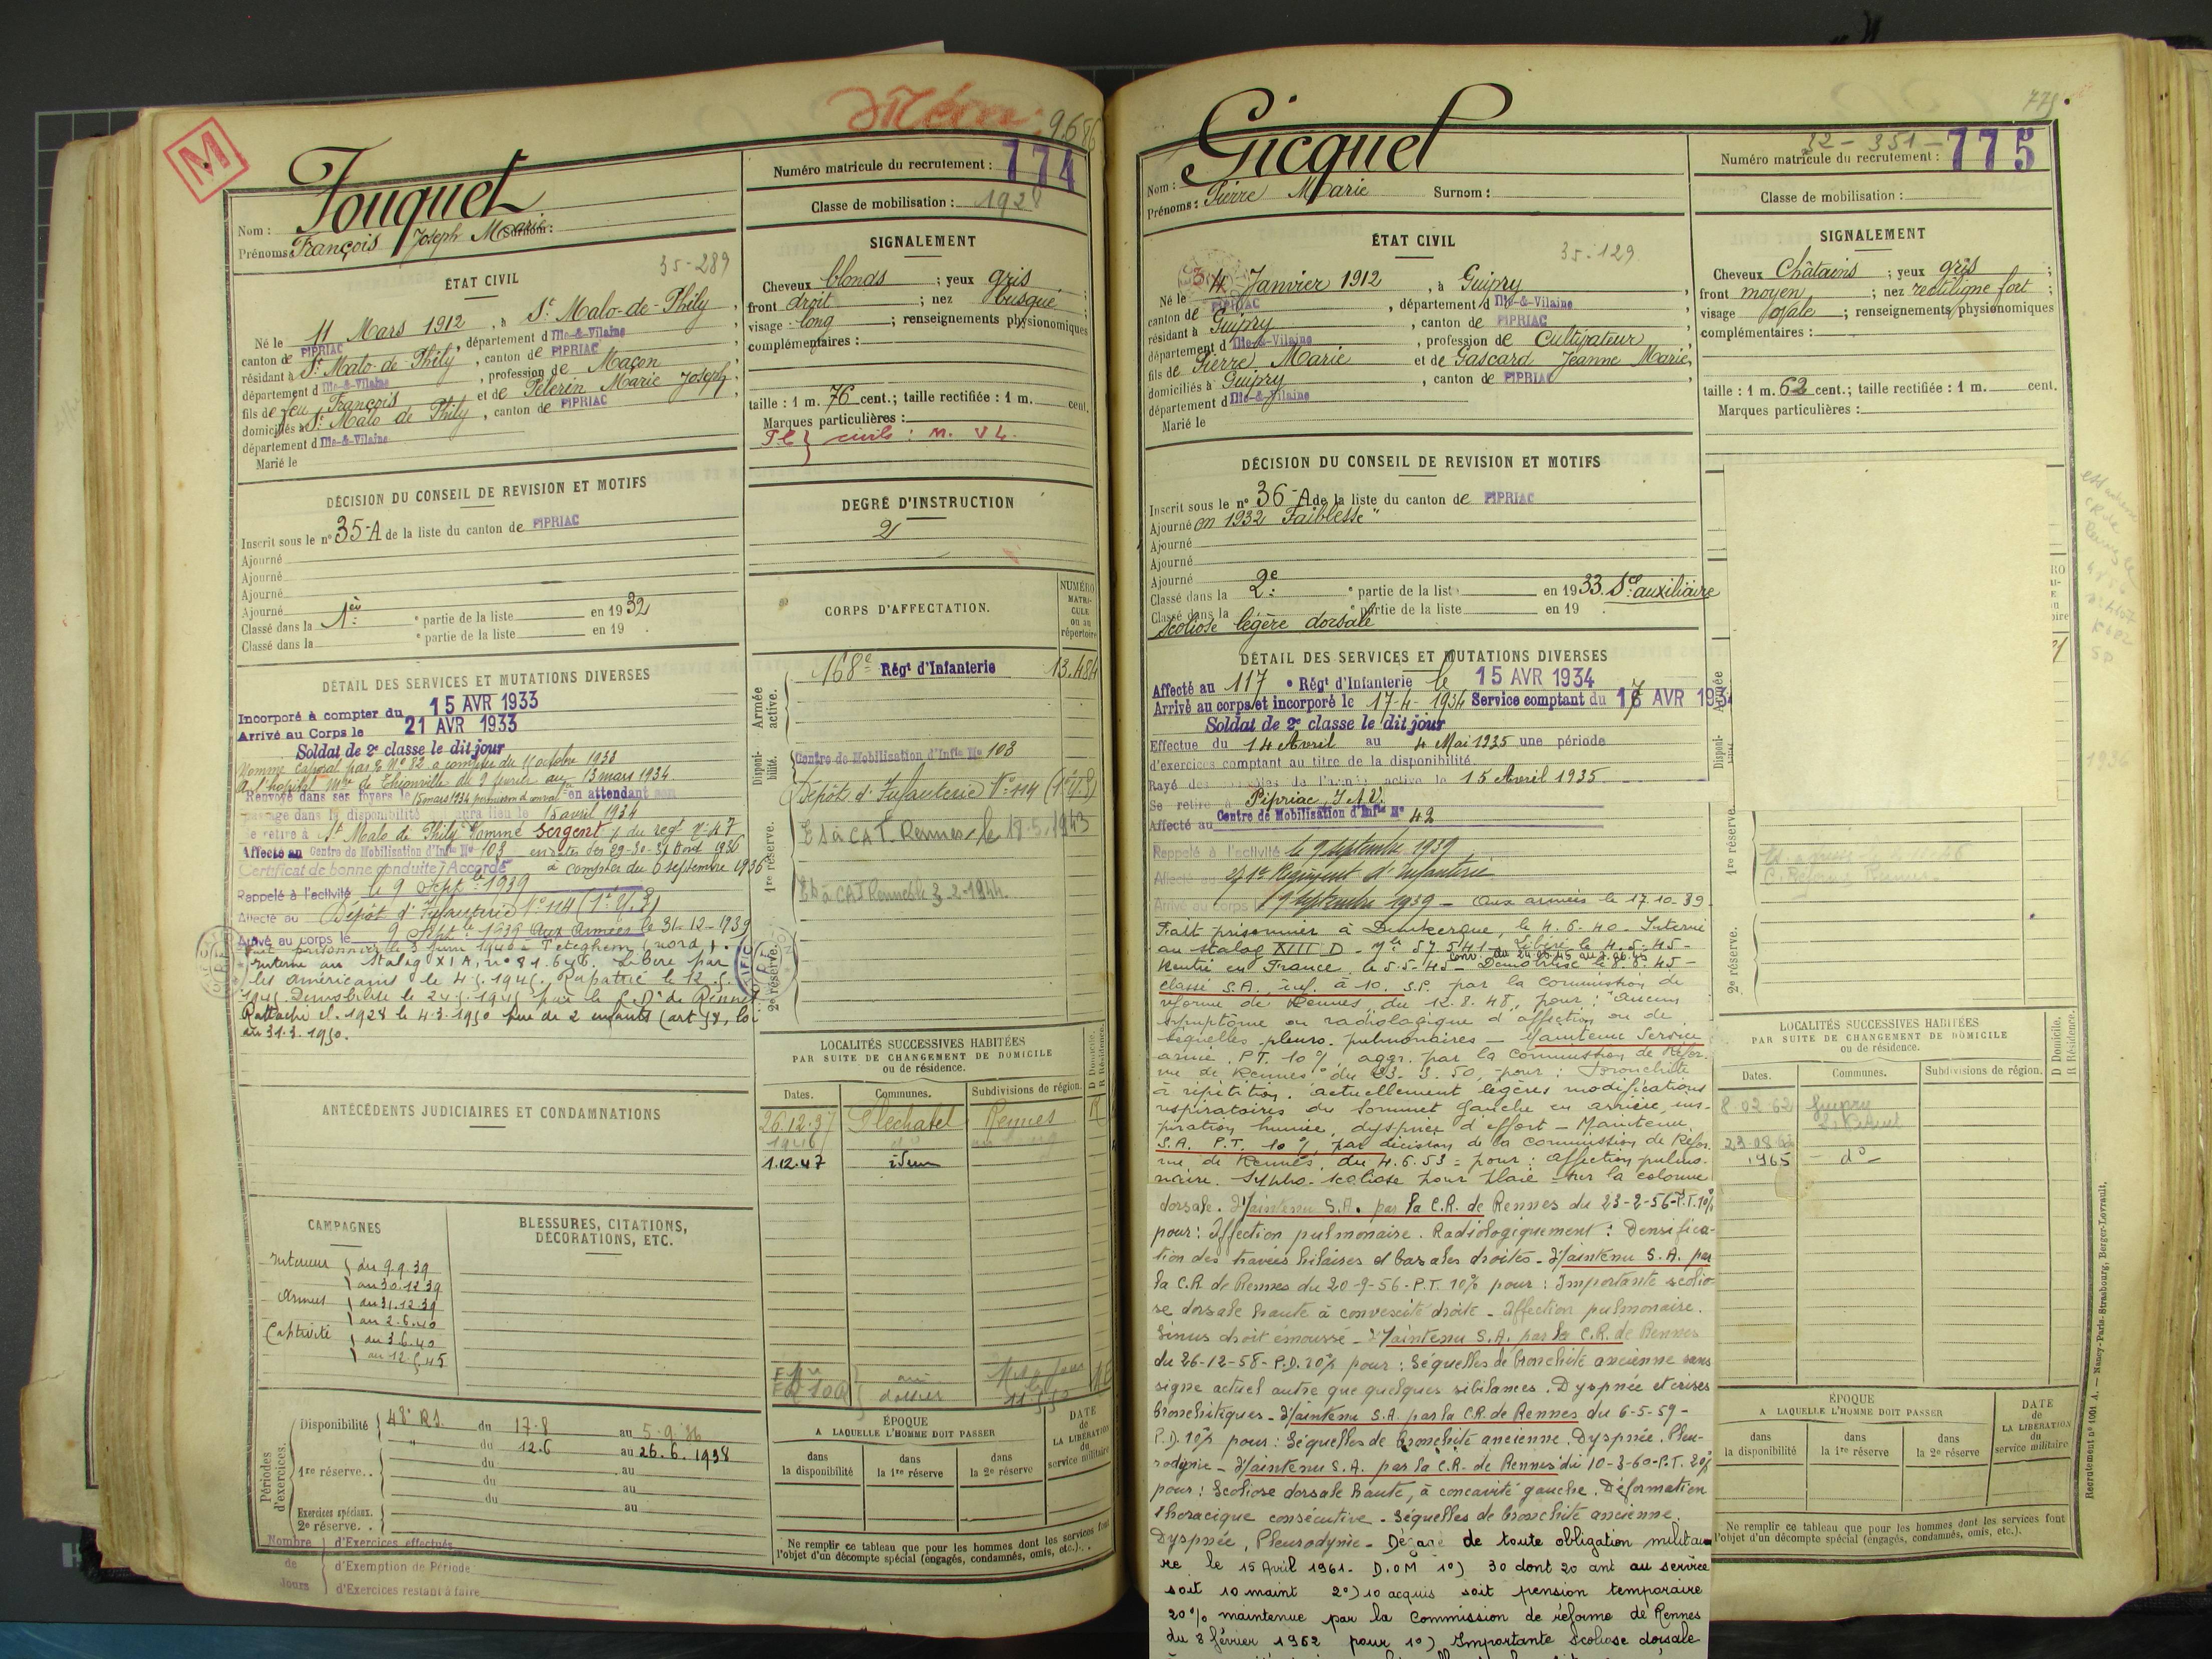 M
9686
Fouquet
Nom :
Prénoms : François Joseph Marie Surnom :
Numéro matricule du recrutement : 774
Classe de mobilisation : 1928
ÉTAT CIVIL
35-289
Né le 11 Mars 1912, à St Malo-de-Phily,
canton de PIPRIAC, département d Ille-&-Vilaine
résidant à St Malo de Phily, canton de PIPRIAC,
département d Ille-&-Vilaine, profession de Maçon
fils de feu François et de Pelerin Marie Joseph,
domiciliés à St Malo de Phily, canton de PIPRIAC
département d Ille-&-Vilaine
Marié le
SIGNALEMENT
Cheveux blonds ; yeux gris ;
front droit ; nez busqué ;
visage long ; renseignements physionomiques
complémentaires :
taille : 1 m. 76 cent.; taille rectifiée : 1 m. cent.
Marques particulières :
DÉCISION DU CONSEIL DE REVISION ET MOTIFS
Inscrit sous le n° 35-A de la liste du canton de PIPRIAC
Ajourné
Ajourné
Ajourné
Ajourné
Classé dans la 1ère partie de la liste en 1932
Classé dans la ° partie de la liste en 19 .
DEGRÉ D'INSTRUCTION
2
DÉTAIL DES SERVICES ET MUTATIONS DIVERSES
Incorporé à compter du 15 AVR 1933
Arrivé au Corps le 21 AVR 1933
Soldat de 2e classe le dit jour
Nommé Caporal par O N° 82 à compter du 11 octobre 1933
A l'hopital Mre de Thionville du 9 février au 13 mars 1934.
Renvoyé dans ses foyers le 15 mars 1934 en attendant son
passage dans la disponibilité aura lieu le 15 avril 1934
Se retire à St Malo de Phily Nommé Sergent
Affecté au Centre de Mobilisation d'Infie N° 103
Certificat de bonne conduite Accordé à compter du 6 septembre 1936
Rappelé à l'activité le 9 Septbre 1939
Affecté au Dépôt d'Infanterie N° 114 (1e U.P)
Arrivé au corps le 9 Septe 1939 Aux Armées le 31-12-1939
Fait prisonnier le 3 Juin 1940 à Teteghem (nord).
Interné au Stalag XI A, n° 81.646. Libéré par
les américains le 4.5.1945. Rapatrié le 12.5.
1945. Démobilisé le 24.5.1945 par le C.D. de Rennes
Rattaché cl. 1928 le 4.3.1950 père de 2 enfants (art 58, loi
du 31.3.1950.
CORPS D'AFFECTATION.
NUMÉRO MATRICULE ou au répertoire
Armée active.
168e Régt d'Infanterie 13.484
Disponibilité.
Centre de Mobilisation d'Infie N° 103
Dépôt d'Infanterie N° 114 (1e U.P)
1re réserve.
2e réserve.
ANTÉCÉDENTS JUDICIAIRES ET CONDAMNATIONS
LOCALITÉS SUCCESSIVES HABITÉES
PAR SUITE DE CHANGEMENT DE DOMICILE
ou de résidence.
D Domicile. R Résidence.
Dates. Communes. Subdivisions de région.
26.12.37 Plechatel Rennes R
1946 do
1.12.47 idem
CAMPAGNES
Intérieur du 9.9.39
au 30.12.39
Armées du 31.12.39
au 2.6.40
Captivité du 3.6.40
au 12.5.45
BLESSURES, CITATIONS,
DÉCORATIONS, ETC.
Périodes d'exercices.
Disponibilité 48e R.I. du 17.8 au 5.9.36
" du 12.6 au 26.6.1938
1re réserve. . du au
du au
Exercices spéciaux. du au
2e réserve. .
Nombre de Jours
d'Exercices effectués
d'Exemption de Période
d'Exercices restant à faire
ÉPOQUE
A LAQUELLE L'HOMME DOIT PASSER
dans la disponibilité
dans la 1re réserve
dans la 2e réserve
DATE de LA LIBÉRATION du service militaire
Ne remplir ce tableau que pour les hommes dont les services font
l'objet d'un décompte spécial (engagés, condamnés, omis, etc.).
775
Gicquel
Nom :
Prénoms : Pierre Marie Surnom :
32-351-
Numéro matricule du recrutement : 775
Classe de mobilisation :
ÉTAT CIVIL
35-129
Né le 4 Janvier 1912, à Guipry
canton de PIPRIAC, département d Ille-&-Vilaine
résidant à Guipry, canton de PIPRIAC
département d Ille-&-Vilaine, profession de Cultivateur,
fils de Pierre Marie et de Gascard Jeanne Marie,
domiciliés à Guipry, canton de PIPRIAC,
département d Ille-&-Vilaine
Marié le
SIGNALEMENT
Cheveux Châtains ; yeux gris ;
front moyen ; nez rectiligne fort ;
visage ovale ; renseignements physionomiques
complémentaires :
taille : 1 m. 62 cent.; taille rectifiée : 1 m. cent.
Marques particulières :
DÉCISION DU CONSEIL DE REVISION ET MOTIFS
Inscrit sous le n° 36-A de la liste du canton de PIPRIAC
Ajourné en 1932 Faiblesse"
Ajourné
Ajourné
Ajourné
Classé dans la 2e ° partie de la liste en 1933. Sce auxiliaire
Classé dans la ° partie de la liste en 19
scoliose légère dorsale
DÉTAIL DES SERVICES ET MUTATIONS DIVERSES
Affecté au 117 e Régt d'Infanterie le 15 AVR 1934
Arrivé au corps et incorporé le 17-4-1934 Service comptant du 17 AVR 1934
Soldat de 2e classe le dit jour
Effectue du 14 Avril au 4 Mai 1935 une période
d'exercices comptant au titre de la disponibilité.
Rayé des contrôles de l'armée active le 15 Avril 1935
Se retire à Pipriac, I.&.V.
Affecté au Centre de Mobilisation d'Infie N° 42
Rappelé à l'activité le 9 septembre 1939
Affecté au 271e Régiment d'Infanterie
Arrivé au corps 9 septembre 1939 - Aux armées le 17.10.39.
Fait prisonnier à Dunkerque, le 4.6.40 - Interné
au stalag XIII D - Mle 57 541 - Libéré le 4-5-45 -
Rentré en France le 5-5-45 - Démobilisé le 8.8.45 -
Classé S.A., inf. à 10. S.P. par la Commission de
réforme de Rennes, du 12.8.48, pour : "Aucun
symptôme ou radiologique d'affection ou de
séquelles pleuro-pulmonaires - Maintenu Service
armé. P.T. 10 %, aggr. par la Commission de Réfor-
me de Rennes du 23-3-50, pour : Bronchite
à répétition. actuellement légères modifications
respiratoires du sommet gauche en arrière, ins-
piration humée, dyspnée d'effort - Maintenu
S.A. P.T. 10 % par décision de la commission de Réfor-
me de Rennes, du 4.6.53 - pour : affection pulmo-
naire. Sypho-scoliose pour plaie sur la colonne
dorsale. Maintenu S.A. par la C.R. de Rennes du 23-2-56-P.T. 10%
pour : Affection pulmonaire. Radiologiquement : Densifica-
tion des travées hilaires et basales droites - Maintenu S.A. par
la C.R. de Rennes du 20-9-56 - P.T. 10% pour : Importante scolio-
se dorsale haute à convexité droite - Affection pulmonaire.
Sinus droit émoussé - Maintenu S.A. par la C.R. de Rennes
du 26-12-58 - P.D. 20% pour : Séquelles de bronchite ancienne sans
signe actuel autre que quelques sibilances. Dyspnée et crises
bronchitiques - Maintenu S.A. par la C.R. de Rennes du 6-5-59 -
P.D. 10% pour : Séquelles de bronchite ancienne. Dyspnée. Pleu-
rodynie - Maintenu S.A. par la C.R. de Rennes du 10-3-60-P.T. 20%
pour : Scoliose dorsale haute, à concavité gauche. Déformation
thoracique consécutive - Séquelles de bronchite ancienne.
Dyspnée, Pleurodynie - Dégagé de toute obligation militai
re le 15 Avril 1961. D.O.M 1°) 30 dont 20 ant au service
soit 10 maint 2°) 10 acquis soit pension temporaire
20% maintenue par la Commission de réforme de Rennes
du 8 février 1962 pour 1°) Importante scoliose dorsale
1re réserve.
2e réserve.
LOCALITÉS SUCCESSIVES HABITÉES
PAR SUITE DE CHANGEMENT DE DOMICILE
ou de résidence.
D Domicile. R Résidence.
Dates. Communes. Subdivisions de région.
8.02.62 Guipry
23.08.62
1965 - do -
ÉPOQUE
A LAQUELLE L'HOMME DOIT PASSER
dans la disponibilité
dans la 1re réserve
dans la 2e réserve
DATE de LA LIBÉRATION du service militaire
Ne remplir ce tableau que pour les hommes dont les services font
l'objet d'un décompte spécial (engagés, condamnés, omis, etc.).
Recrutement n° 1001 A. — Nancy-Paris-Strasbourg, Berger-Levrault.